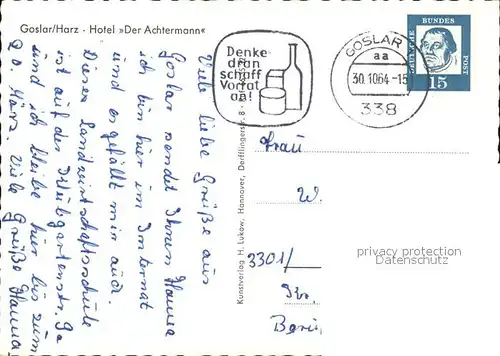 Goslar/Harz · Hotel »Der Achtermann«
Viele liebe Grüße aus
Goslar sendet Ihnen Hanna
ich bin hier im Internat
und es gefällt mir auch.
Diese Landwirtschaftsschule
ist auf der
und ich bleibe hier bis zum
20 März. Viele Grüße Hanna
Denke
dran
schaff
Vorrat
an!
GOSLAR
aa
30.10.64-15
338
DEUTSCHE
BUNDES
POST
15
Kunstverlag H. Lukow, Hannover, Derfflingerstr. 8
Frau
W.
3301/
Kr.
privacy protection
Datenschutz